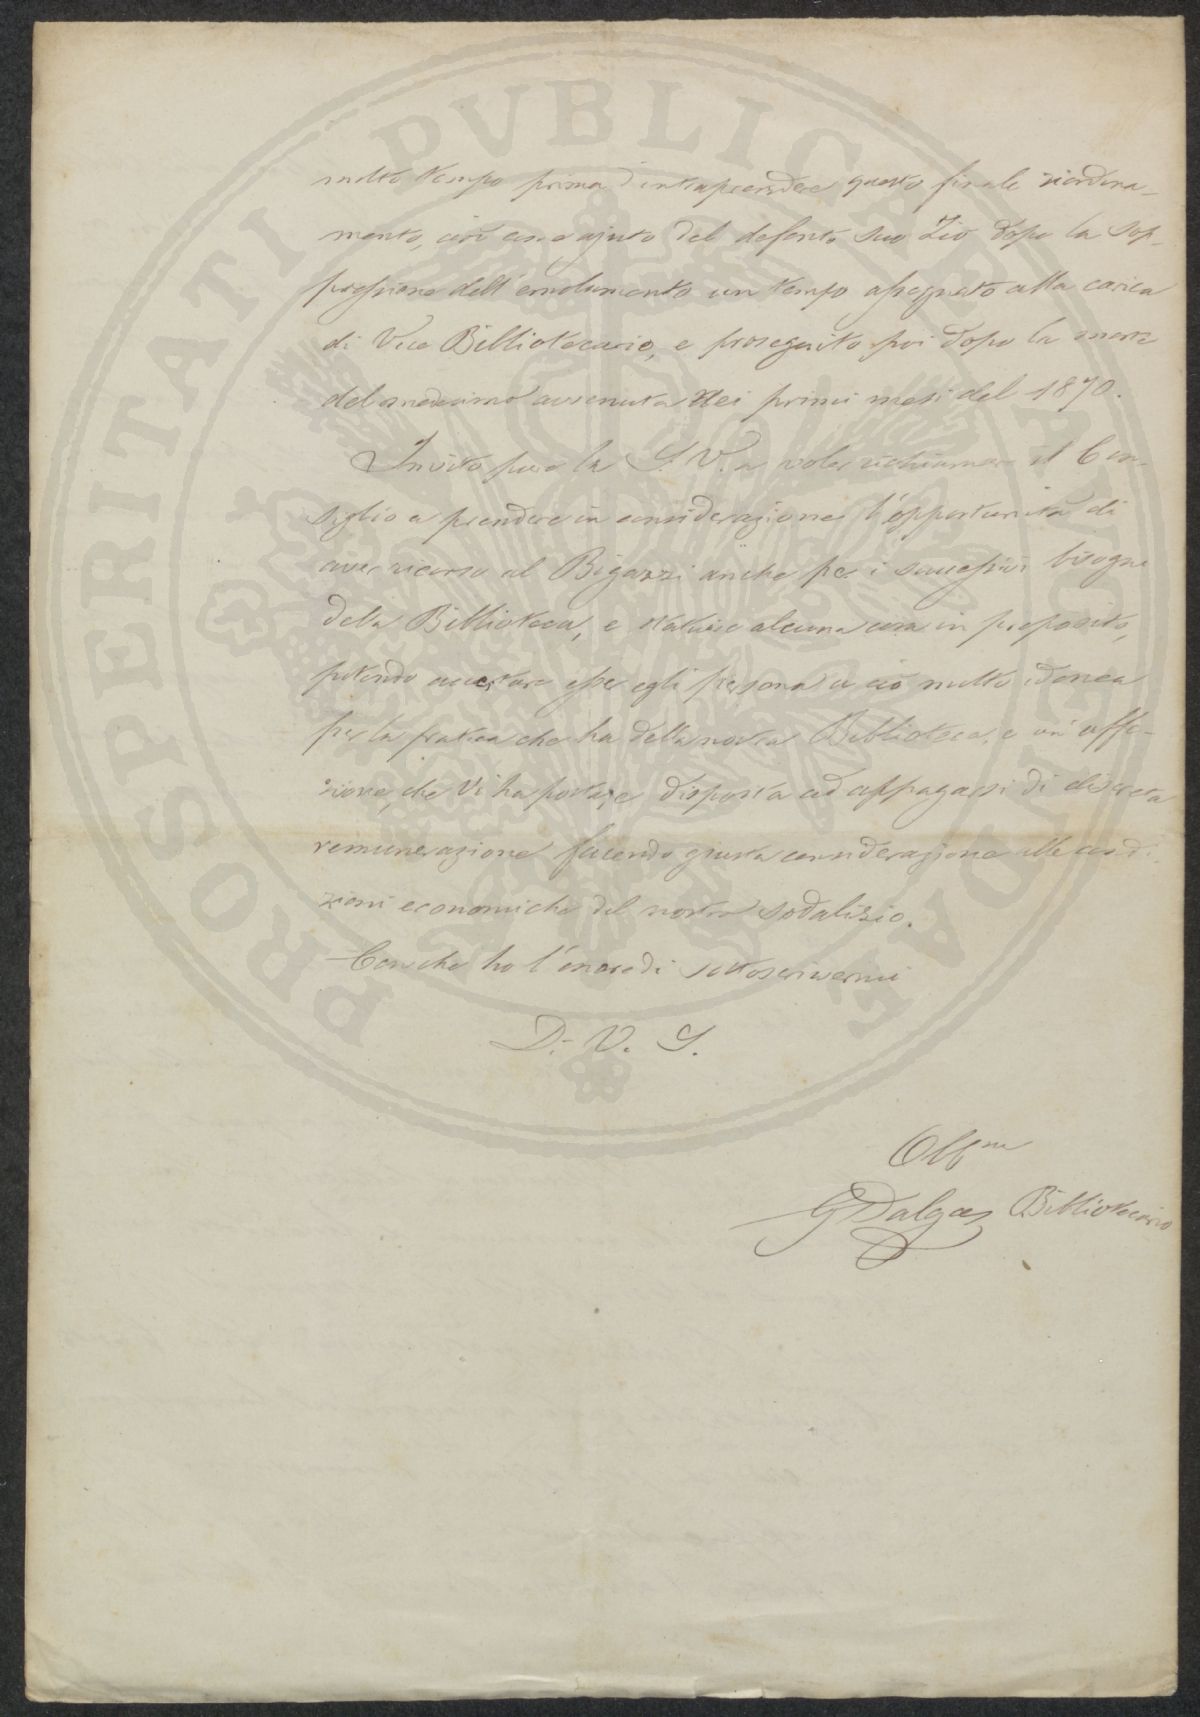 molto tempo prima d'intraprendere questo finale riordina-
mento, cioè come ajuto del defonto suo Zio dopo la sop-
pressione dell'emolumento un tempo assegnato alla carica
di Vice Bibliotecario, e proseguito poi dopo la morte
del medesimo avvenuta nei primi mesi del 1870.
Invito pure la S. V. a voler richiamare il Con-
siglio a prendere in considerazione l'opportunità di
aver ricorso al Bigazzi anche per i successivi bisogni
della Biblioteca, e statuire alcuna cosa in proposito,
potendo accertare esser egli persona a ciò molto idonea
per la pratica che ha della nostra Biblioteca, e un'affe-
zione, che vi ha portare disposta ad appagarsi di discreta
remunerazione facendo giusta considerazione alle condi-
zioni economiche del nostro sodalizio.
Con che ho l'onore di sottoscrivermi
D. V. S.
Obbmo
G Dalgas Bibliotecario
PROSPERITATI PVBLICAE AVGENDAE